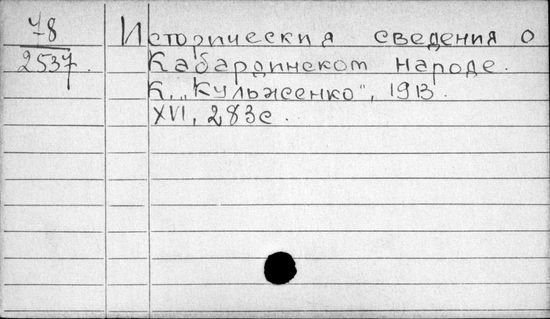 78
2537.
Историческия сведения о
Кабардинском народе.
К., "Кульженко", 1913.
XVI, 283с.